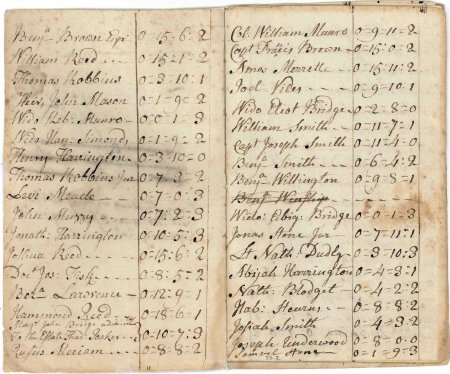 Benjᵃ Brown Esqr 0=15=6=2
William Reed 0=15=1=2
Thomas Robbins 0=3=10=1
Heir John Mason 0=1=9=2
Wido Reb: Munro 0=0=1=3
Wido Han: Simonds 0=1=9=2
Henry Harrington 0=3=10=0
Thomas Robbins Jur 0=7=3=2
Levi Meade 0=7=0=3
John Muzzy 0=7=2=3
Jonath: Harrington 0=10=5=3
Joshua Reed 0=15=6=2
Jos: Fisk 0=8=5=2
Benᵃ Lawrence 0=12=9=1
Hammond Reed 0=18=6=1
John Bridge
to the Estate Thad: Parker 0=10=7=3
Rufus Meriam 0=8=8=2
Col: William Munro 0=9=11=2
Capt Francis Brown 0=15=0=2
Amos Morrell 0=15=11=2
Joel Viles 0=9=10=1
Wido Eliot Bridge 0=2=8=0
William Smith 0=11=7=1
Capt Joseph Smith 0=11=4=0
Benjᵃ Smith 0=6=4=2
Benjᵃ Wellington 0=9=8=1
Benjᵃ Winship
Wido: Ebinr: Bridge 0=0=1=3
Jonas Stone Jur 0=7=11=1
Lt Nath: Dudly 0=3=10=3
Abijah Harrington 0=4=3=1
Nath: Blodget 0=4=2=2
Hab: Stearns 0=8=8=2
Josiah Smith 0=4=3=2
Joseph Underwood 0=8=0=0
Samuel Stone 0=1=9=3